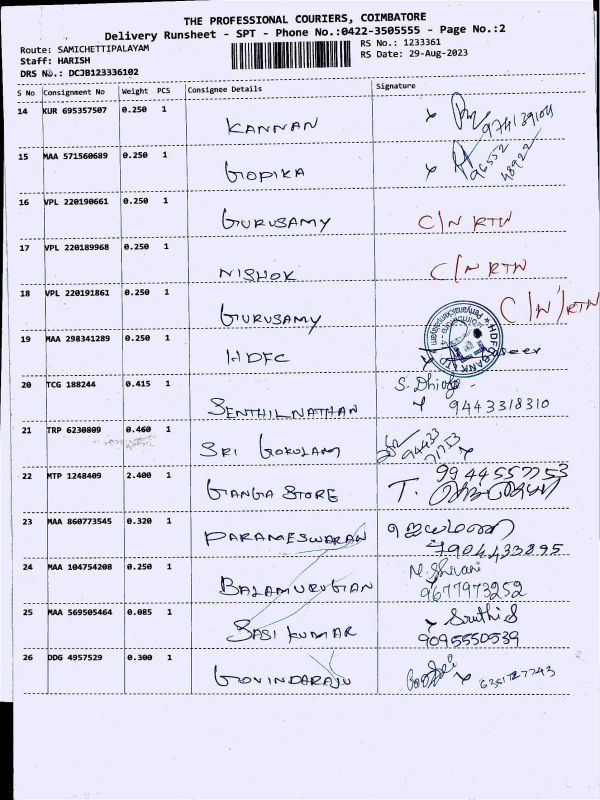 THE PROFESSIONAL COURIERS, COIMBATORE
Delivery Runsheet - SPT - Phone No.:0422-3505555 - Page No.:2
Route: SAMICHETTIPALAYAM
RS No.: 1233361
Staff: HARISH
RS Date: 29-Aug-2023
DRS No.: DCJB123336102
S No Consignment No Weight PCS Consignee Details Signature
14 KUR 695357507 0.250 1
KANNAN
15 MAA 571560689 0.250 1
GOPIKA
96552
48922
16 VPL 220190661 0.250 1
GURUSAMY C/N RTN
17 VPL 220189968 0.250 1
NISHOK C/N RTN
18 VPL 220191861 0.250 1
GURUSAMY C/N RTN
HDFC BANK LTD
19 MAA 298341289 0.250 1
HDFC
20 TCG 188244 0.415 1
SENTHILNATHAN 9443318310
21 TRP 6230809 0.460 1
SRI GOKULAM 94433
71753
22 MTP 1248409 2.400 1
9944557753
GANGA STORE T.
23 MAA 860773545 0.320 1
PARAMESWARAN ஜெயமணி
7904433895
24 MAA 104754208 0.250 1
BALAMURUGAN M. Shivani
9677973252
25 MAA 569505464 0.085 1
SASI KUMAR
9095550539
26 DDG 4957529 0.300 1
GOVINDARAJU